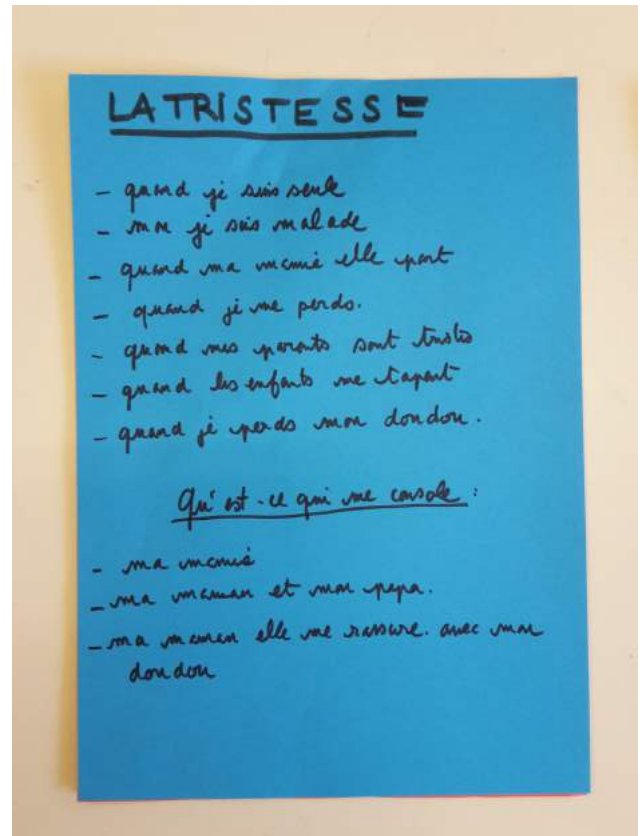 LA TRISTESSE
- quand je suis seule
- moi je suis malade
- quand ma mamie elle part
- quand je me perds.
- quand mes parents sont tristes
- quand les enfants me tapent
- quand je perds mon doudou.
Qu'est-ce qui me console :
- ma mamie
- ma maman et mon papa.
- ma maman elle me rassure. avec mon
doudou